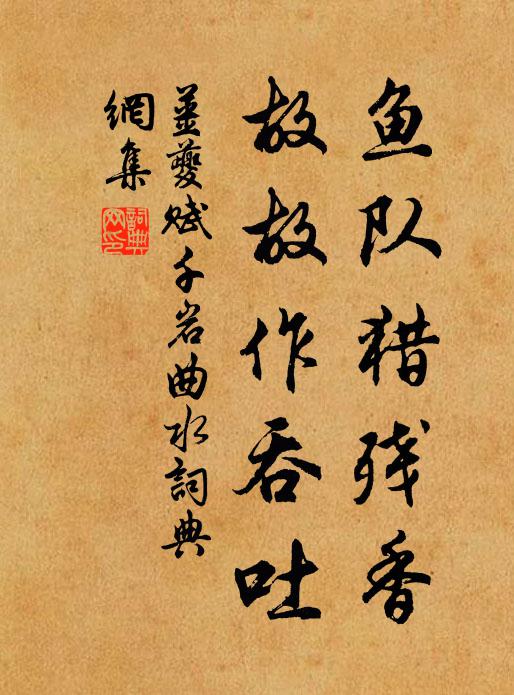 鱼队猎残香
故故作吞吐
姜夔赋千岩曲水詞典
網集
詞典
网印